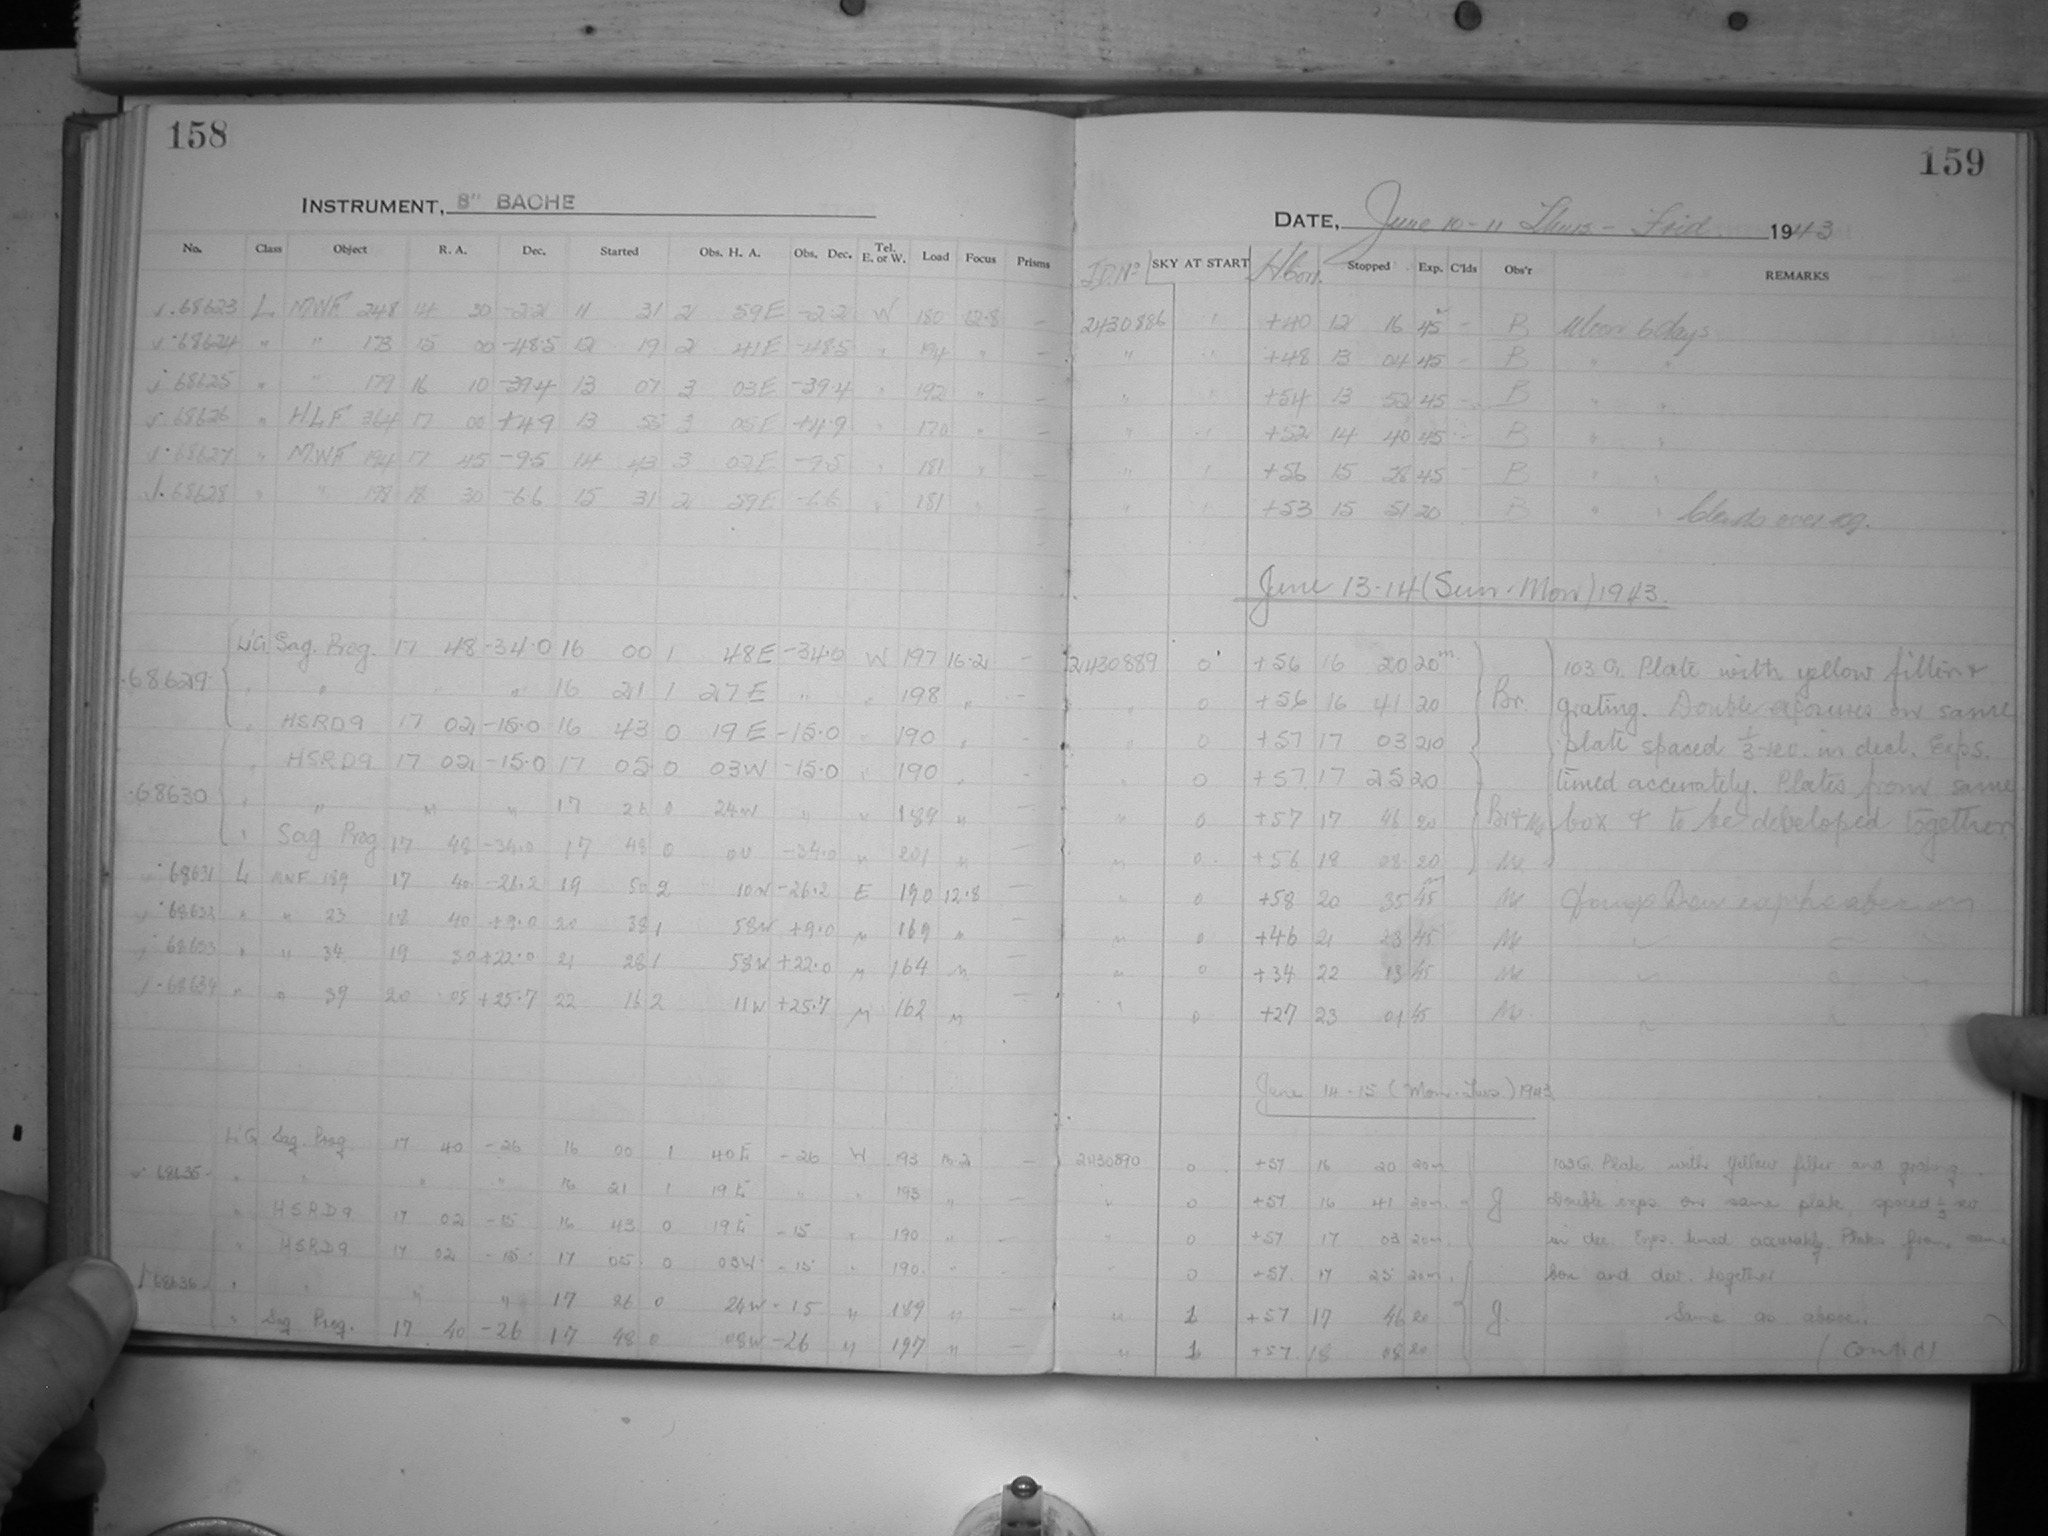 158
INSTRUMENT, 8" BACHE
No. Class Object R. A. Dec. Started Obs. H. A. Obs. Dec. Tel. E. or W. Load Focus Prisms
68623 L MWF 248 14 30 -2.2 11 31 2 59E -2.2 W 180 12.8 –
68624 " " 173 15 00 -48.5 12 19 2 41E -48.5 " 194 " –
68625 " " 179 16 10 -39.4 13 07 3 03E -39.4 " 192 " –
68626 " HLF 364 17 00 +4.9 13 55 3 05E +4.9 " 170 " –
68627 " MWF 194 17 45 -9.5 14 43 3 02E -9.5 " 181 " –
68628 " " 198 18 30 -6.6 15 31 2 59E -6.6 " 181 " –
L'G Sag. Prog. 17 48 -34.0 16 00 1 48E -34.0 W 197 16.2 –
68629 " " " " 16 21 1 27E " " 198 " –
" HSRD9 17 02 -15.0 16 43 0 19E -15.0 " 190 " –
" HSRD9 17 02 -15.0 17 05 0 03W -15.0 " 190 "
68630 " " " " 17 26 0 24W " " 189 " –
" Sag Prog 17 48 -34.0 17 48 0 00 -34.0 " 201 " –
68631 L MWF 189 17 40 -26.2 19 50 2 10W -26.2 E 190 12.8 –
68632 " " 23 18 40 +9.0 20 38 1 58W +9.0 " 169 " –
68633 " " 34 19 30 +22.0 21 28 1 58W +22.0 " 164 " –
68634 " " 39 20 05 +25.7 22 16 2 11W +25.7 " 162 "
L'G Sag. Prog. 17 40 -26 16 00 1 40E -26 W 193 16.2 –
68635 " " " " 16 21 1 19E " " 193 " –
" HSRD9 17 02 -15 16 43 0 19E -15 " 190 " –
" HSRD9 17 02 -15 17 05 0 03W -15 " 190 " –
68636 " " " " 17 26 0 24W -15 " 189 " –
" Sag Prog. 17 40 -26 17 48 0 08W -26 " 197 " –
159
DATE, June 10-11 Thurs - Frid 1943
J.D. No SKY AT START Stopped Exp. C'lds Obs'r REMARKS
2430886 " +40 12 16 45 – B Moon 6 days
" " +48 13 04 45 – B " "
" " +54 13 52 45 – B " "
" " +52 14 40 45 – B " "
" " +56 15 28 45 B " "
" " +53 15 51 20 B " " Clouds over
June 13-14 (Sun-Mon) 1943.
2430889 0 +56 16 20 20m 103 G. Plate with yellow filter +
" 0 +56 16 41 20 Br. grating. Double exposures on same
" 0 +57 17 03 20 plate spaced 1/3 rev. in decl. Exps.
" 0 +57 17 25 20 timed accurately. Plates from same
" 0 +57 17 46 20 box & to be developed together
" 0 +56 18 08 20
" 0 +58 20 35 45
" 0 +46 21 23 45
" 0 +34 22 13 45
" 0 +27 23 01 45
June 14-15 (Mon-Tues.) 1943
2430890 0 +57 16 20 20m 103G. Plate with yellow filter and grating.
" 0 +57 16 41 20m. g Double exps. on same plate, spaced 1/3 rev
" 0 +57 17 03 20m. in dec. Exps. timed accurately. Plates from same
" 0 +57 17 25 20m. box and dev. together
" 1 +57 17 46 20 g. Same as above.
" 1 +57 18 08 20 (Cont'd)